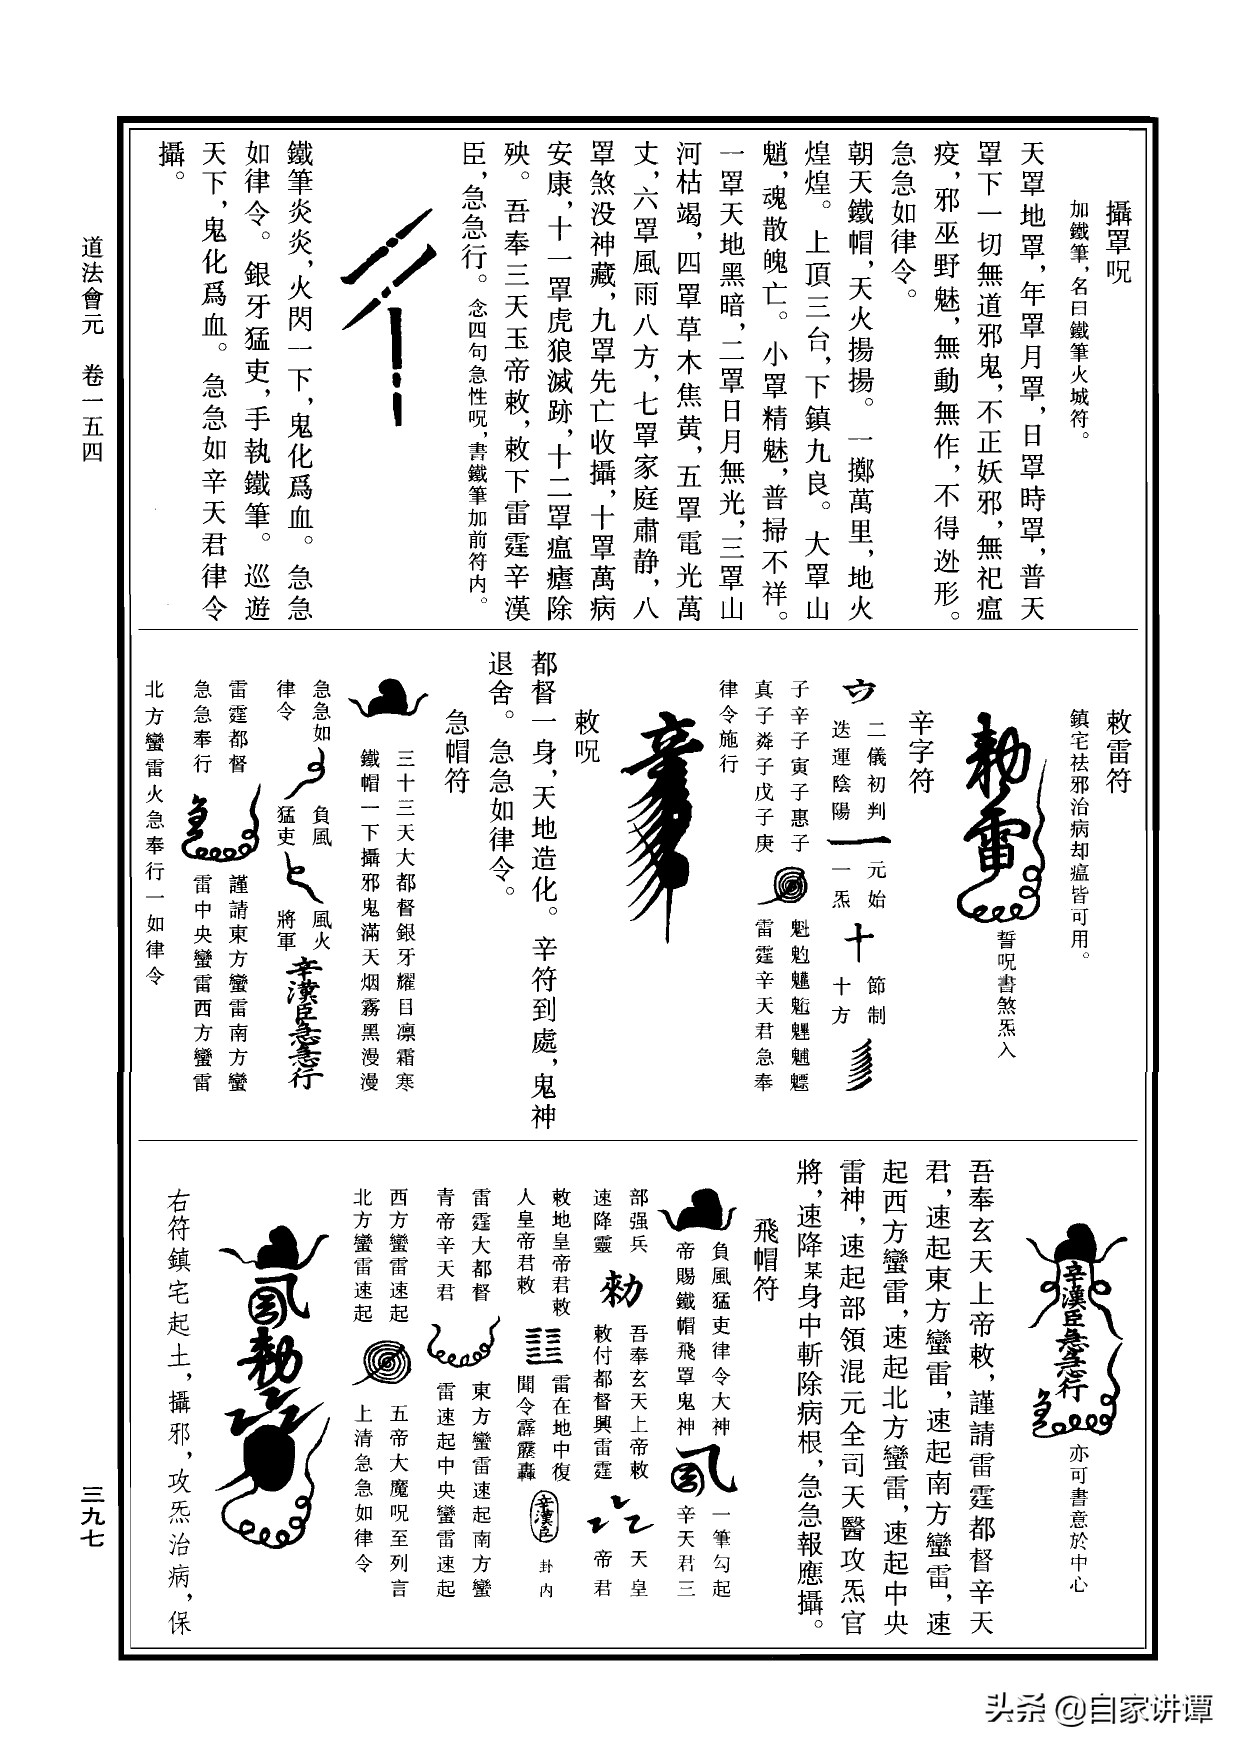 攝罩呪
加鐵筆，名曰鐵筆火城符。
天罩地罩，年罩月罩，日罩時罩，普天
罩下一切無道邪鬼，不正妖邪，無祀瘟
疫，邪巫野魅，無動無作，不得迯形。
急急如律令。
朝天鐵帽，天火揚揚。一擲萬里，地火
煌煌。上頂三台，下鎮九良。大罩山
魈，魂散魄亡。小罩精魅，普掃不祥。
一罩天地黑暗，二罩日月無光，三罩山
河枯竭，四罩草木焦黄，五罩電光萬
丈，六罩風雨八方，七罩家庭肅静，八
罩煞没神藏，九罩先亡收攝，十罩萬病
安康，十一罩虎狼滅跡，十二罩瘟瘧除
殃。吾奉三天玉帝敕，敕下雷霆辛漢
臣，急急行。念四句急性呪，書鐵筆加前符内。
鐵筆炎炎，火閃一下，鬼化爲血。急急
如律令。銀牙猛吏，手執鐵筆。巡遊
天下，鬼化爲血。急急如辛天君律令
攝。
敕雷符
鎮宅祛邪治病却瘟皆可用。
敕雷
誓呪書煞炁入
辛字符
二儀初判
迭運陰陽
一
元始
一炁
十
節制
十方
子辛子寅子惠子
真子粦子戊子庚
魁魀魓䰢魓魖魒
雷霆辛天君急奉
律令施行
敕呪
都督一身，天地造化。辛符到處，鬼神
退舍。急急如律令。
急帽符
三十三天大都督銀牙耀目凛霜寒
鐵帽一下攝邪鬼滿天烟霧黑漫漫
急急如
律令
負風
猛吏
風火
將軍
辛漢臣急急行
雷霆都督
急急奉行
謹請東方蠻雷南方蠻
雷中央蠻雷西方蠻雷
北方蠻雷火急奉行一如律令
辛漢臣急急行
亦可書意於中心
吾奉玄天上帝敕，謹請雷霆都督辛天
君，速起東方蠻雷，速起南方蠻雷，速
起西方蠻雷，速起北方蠻雷，速起中央
雷神，速起部領混元全司天醫攻炁官
將，速降某身中斬除病根，急急報應攝。
飛帽符
負風猛吏律令大神
帝賜鐵帽飛罩鬼神
一筆勾起
辛天君三
部强兵
速降靈
敕
吾奉玄天上帝敕
敕付都督興雷霆
天皇
帝君
敕地皇帝君敕
人皇帝君敕
雷在地中復
聞令霹靂轟
辛漢臣
卦内
雷霆大都督
青帝辛天君
東方蠻雷速起南方蠻
雷速起中央蠻雷速起
西方蠻雷速起
北方蠻雷速起
五帝大魔呪至列言
上清急急如律令
右符鎮宅起土，攝邪，攻炁治病，保
道法會元　卷一五四
三九七
头条 @自家讲谭